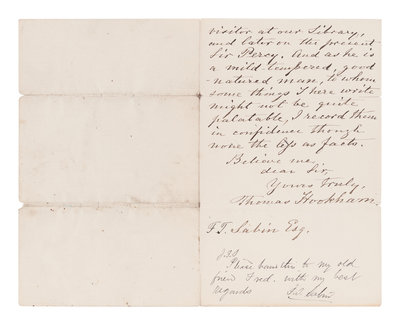 visitor at our Library,
and later on the present
Sir Percy. And as he is
a mild tempered, good
-natured man, to whom
some things I here write
might not be quite
palatable, I record them
in confidence though
none the less as facts.
Believe me,
dear Sir,
Yours truly,
Thomas Hookham.
F.T. Sabin Esq.
Please to my old
friend Fred. with my best
regards